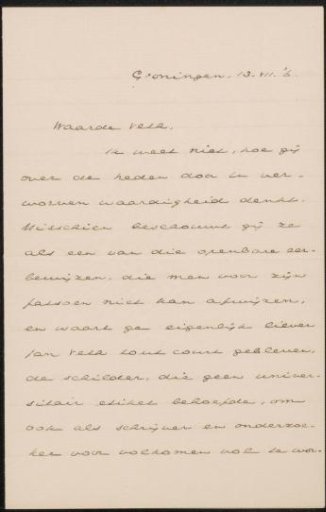 Groningen. 13.VII.'6.
Waarde Veth.
Ik weet niet, hoe gij
over de heden door u ver-
worven waardigheid denkt.
Misschien beschouwt gij ze
als een van die openbare eer-
bewijzen, die men voor zijn
fatsoen niet kan afwijzen,
en waart ge eigenlijk liever
Jan Veth tout court gebleven,
de schilder, die geen univer-
sitair etiket behoefde, om
ook als schrijver en onderzoe-
ker voor volkomen vol te wor-